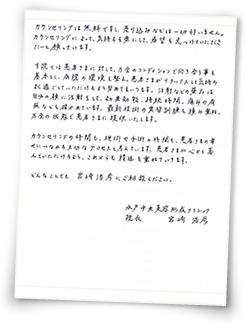 カウンセリングは無料ですし、売り込みなどは一切行いません。
カウンセリングによって、気持ちを楽にして、希望を見つけていただき
たいと願っています。
当院では患者さまに対して、万全のコンディションで向き合う事を
基本とし、病院の環境を整え、患者さまがリラックスした気持ち
でお過ごしていただけるよう努めております。注射などの薬品は
自分の顔に注射をして、効果効能、持続時間、痛みの有
無なども確かめています。最新技術の実習訓練も積み重ね、
万全の状態で患者さまに提供いたします。
カウンセリングの時間も、施術や手術の時間も、患者さまの幸
せにつながる大切なプロセスと考えています。患者さまが心から喜
んでいただけるよう、これからも精進を重ねていきます。
どんなことでも 宮崎浩彦にご相談ください。
水戸中央美容形成クリニック
院長 宮崎 浩彦